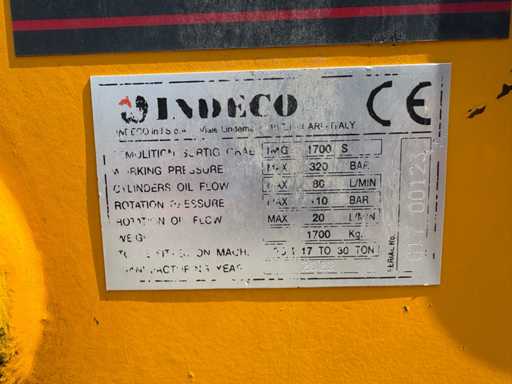 INDECO CE
INDECO ind S.p.A. Viale Lindemann ITALY
DEMOLITION SORTIG GRAB IMG 1700 S
WORKING PRESSURE MAX 320 BAR
CYLINDERS OIL FLOW MAX 80 L/MIN
ROTATION PRESSURE MAX BAR
ROTATION OIL FLOW MAX 20 L/MIN
WEIGHT 1700 Kg.
TO BE FITTED ON MACH. 17 TO 30 TON
MANUFACTURING YEAR
SERIAL No.